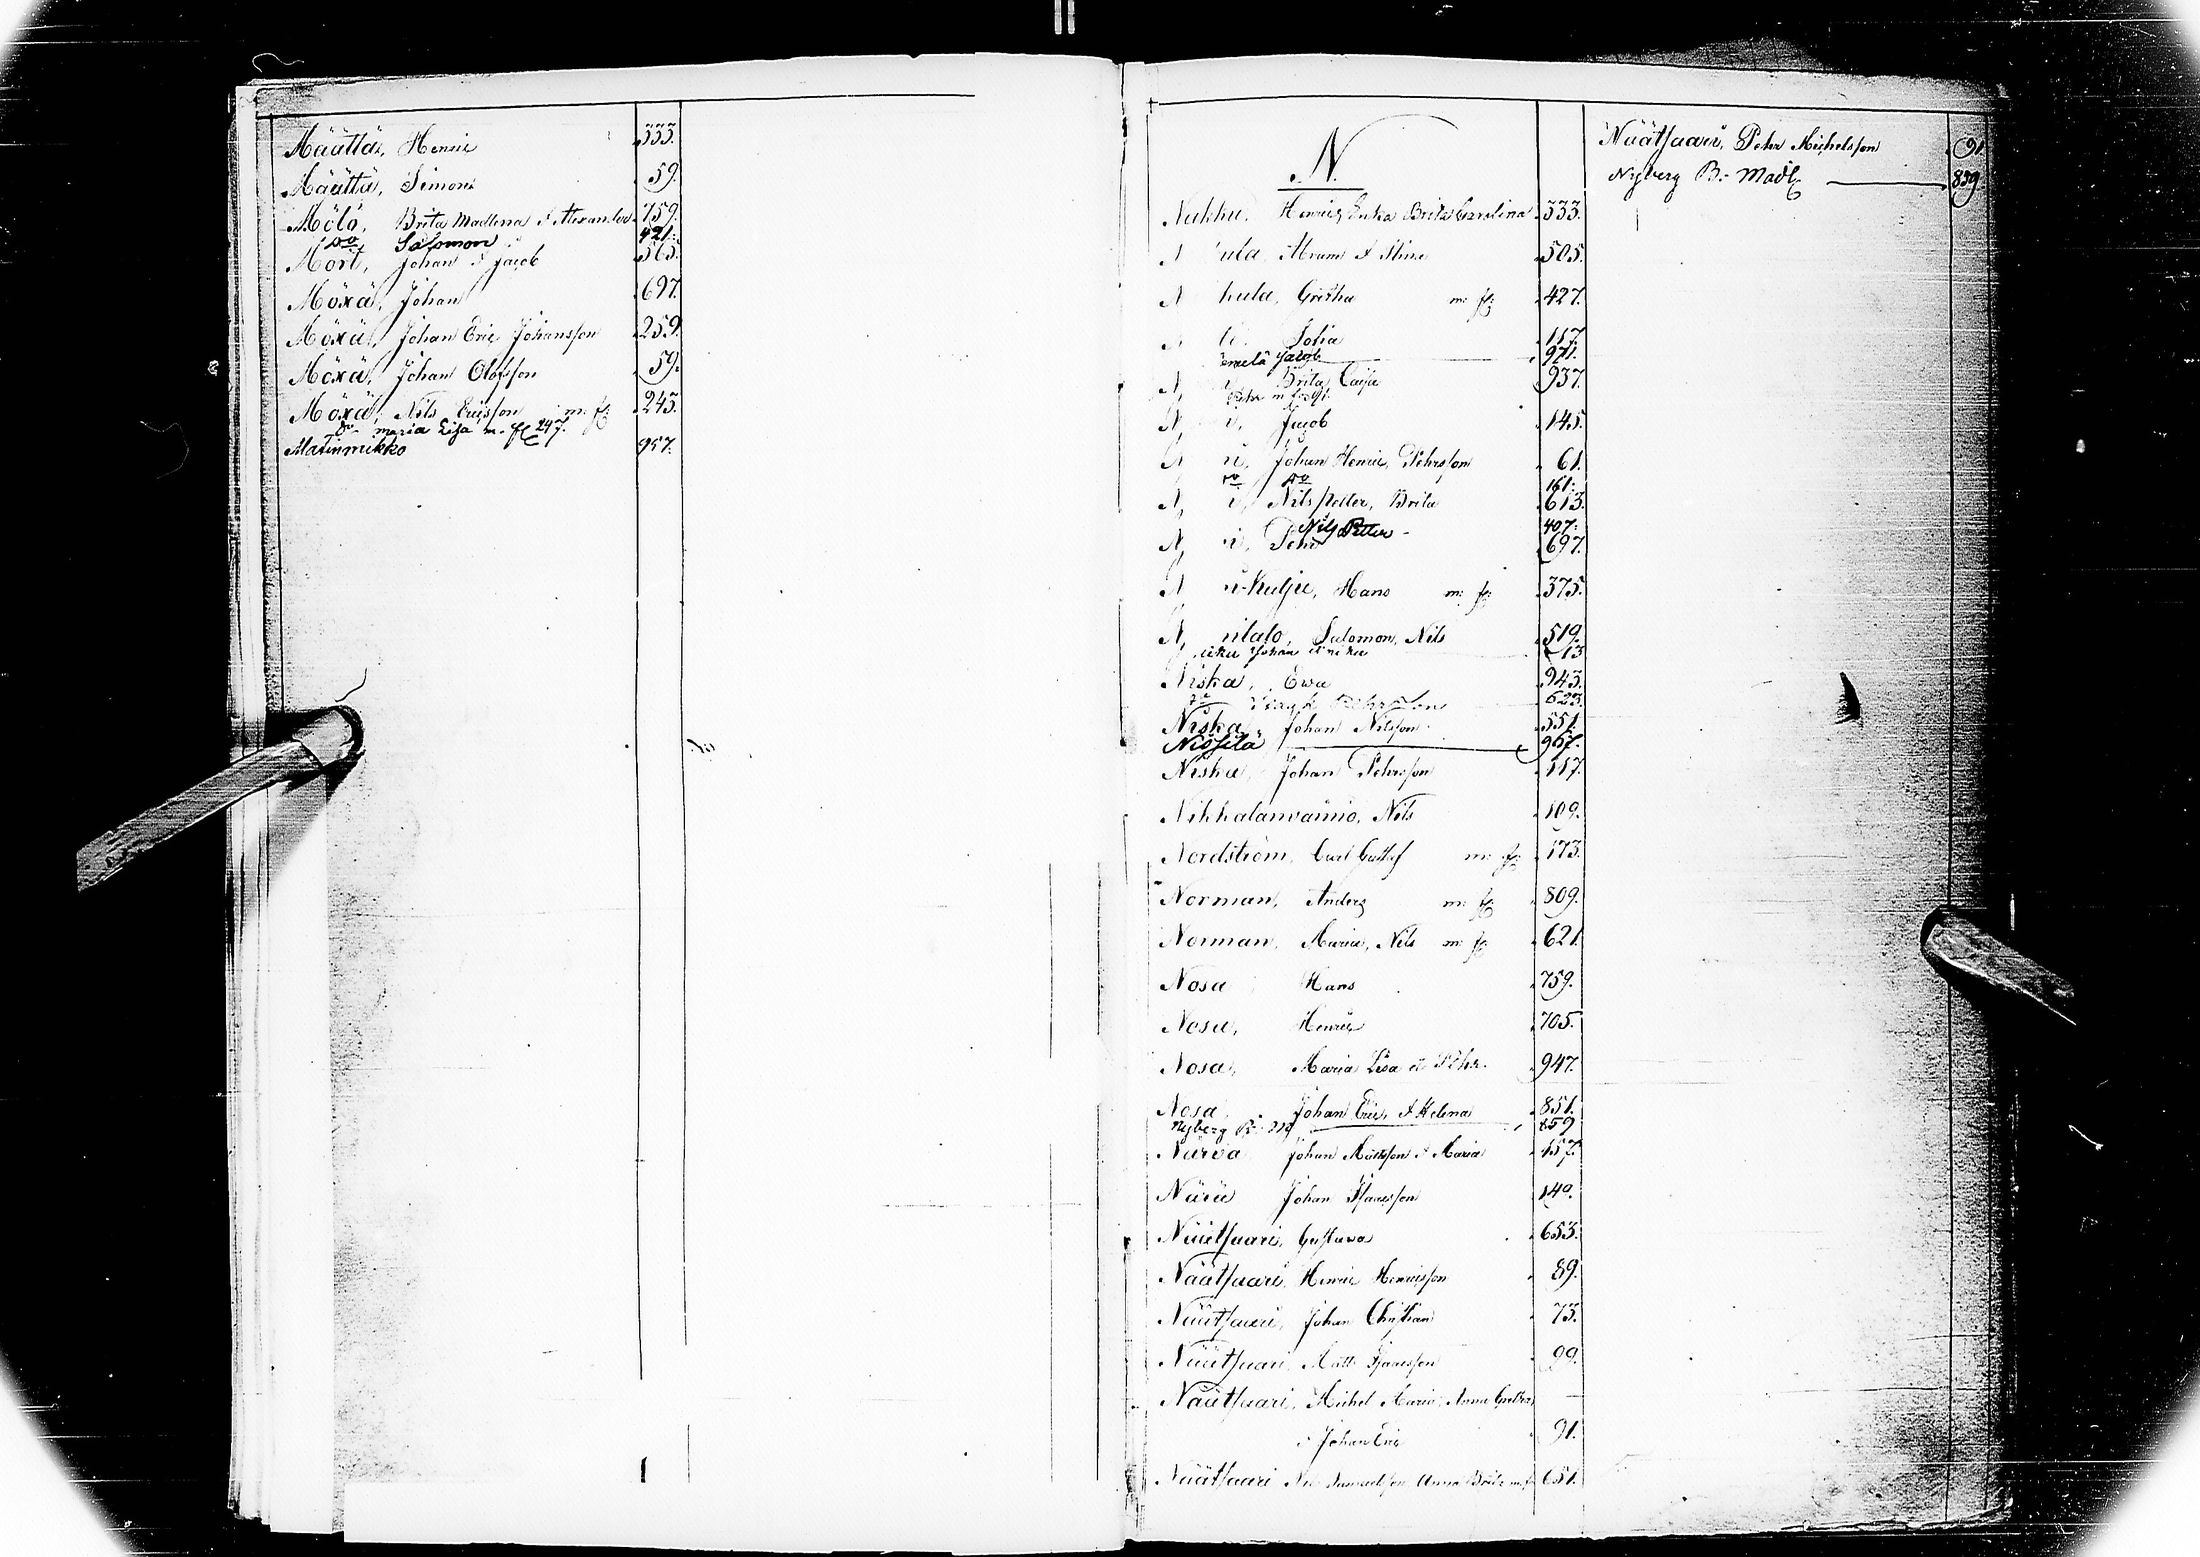 Määttä, Henric 333.
Määttä, Simon 59.
Mölö, Brita Madlena & Alexander 759.
Do Salomon 421.
Mört, Johan & Jacob 565.
Möxä, Johan 697.
Möxä, Johan Eric Johansson 259.
Möxä, Johan Olofsson 59.
Möxä, Nils Ericsson m: fl: 245.
Do Maria Lisa m. fl 247.
Matinmikko 957.
N.
Nakka, Henric, Brita Carolina 333.
ula, Abram & Stina 505.
kula, Gretha m: fl: 427.
Sofia 117.
Jacob 971.
Brita Cajsa 937.
Jacob 145.
Johan Henric, Pehrsson 61.
Do 161.
Nils Petter, Brita 613.
Nils Petter 407.
Pehr 697.
Hans m: fl: 375.
italo, Salomon, Nils 519.
Johan 13
Niska, Ewa 943.
Pehrsson 623.
Niska Johan Nilsson 551.
Nissilä 967.
Niska, Johan Pehrsson 117.
Nikkalanvainio, Nils 109.
Nordström, Carl Gustaf m: fl: 173.
Norman, Anders m: fl: 809.
Norman, Maria, Nils m: fl: 621.
Nosa Hans 759.
Nosa, Henric 705.
Nosa, Maria Lisa & Pehr 947.
Nosa, Johan Eric, & Helena 851.
Nyberg Br: Md 859
Närvä Johan Mattsson & Maria 457.
Närä Johan Isacsson 149.
Näätsaari, Gustava 653.
Näätsaari, Henric Henricsson 89.
Näätsaari, Johan Christian 73.
Näätsaari, Matts Isacsson 99.
Näätsaari, Michel Maria, Anna Gretha,
& Johan Eric 91.
Näätsaari Nils Samuelsson Anna Brita m: fl 651.
Näätsaari, Pehr Michelsson 91
Nyberg B:- Madl 859